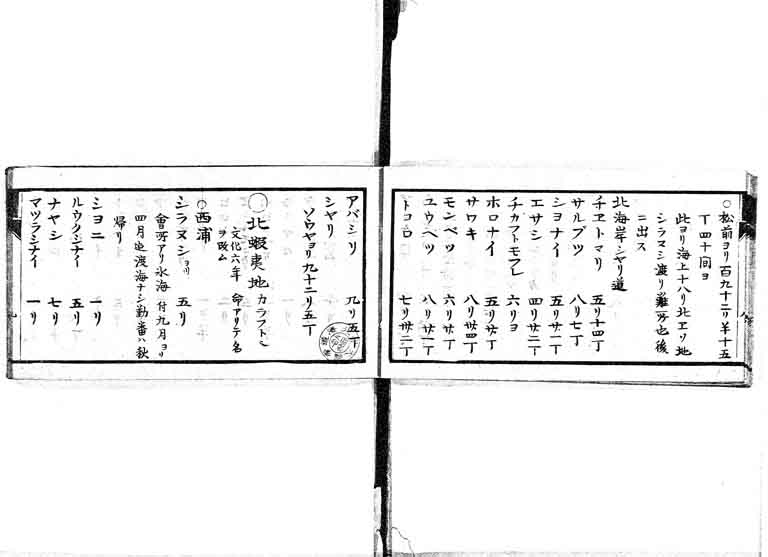 ○松前ヨリ百九十二リ半十五
丁四十間ヨ
此ヨリ海上十八リ北エゾ地
シラヌシ渡リ難所也後
ニ出ス
北海岸シヤリ道
チヱトマリ 五リ十四丁
サルブツ 八リ七丁
シヨナイ 五リ廿一丁
エサシ 四リ廿二丁
チカフトモフレ 六リヨ
ホロナイ 五リ廿丁
サワキ 八リ卅四丁
モンベツ 六リ卅丁
ユウヘツ 八リ廿一丁
トコロ 七リ卅二丁
アバシリ 九リ五丁
シヤリ
ソウヤヨリ九十二リ五丁
○北蝦夷地 カラフト也
文化六年 命アリテ名
ヲ改ム
○西浦
シラヌシヨリ 五リ
會所アリ氷海付九月ヨリ
四月迄渡海ナシ勤番ハ秋
帰リ
シヨニ 一リ
ルウクシナイ 五リ
ナヤシ 七リ
マツラシナイ 一リ